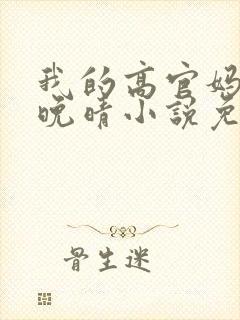 我的高官妈
晚晴小说免
骨生迷